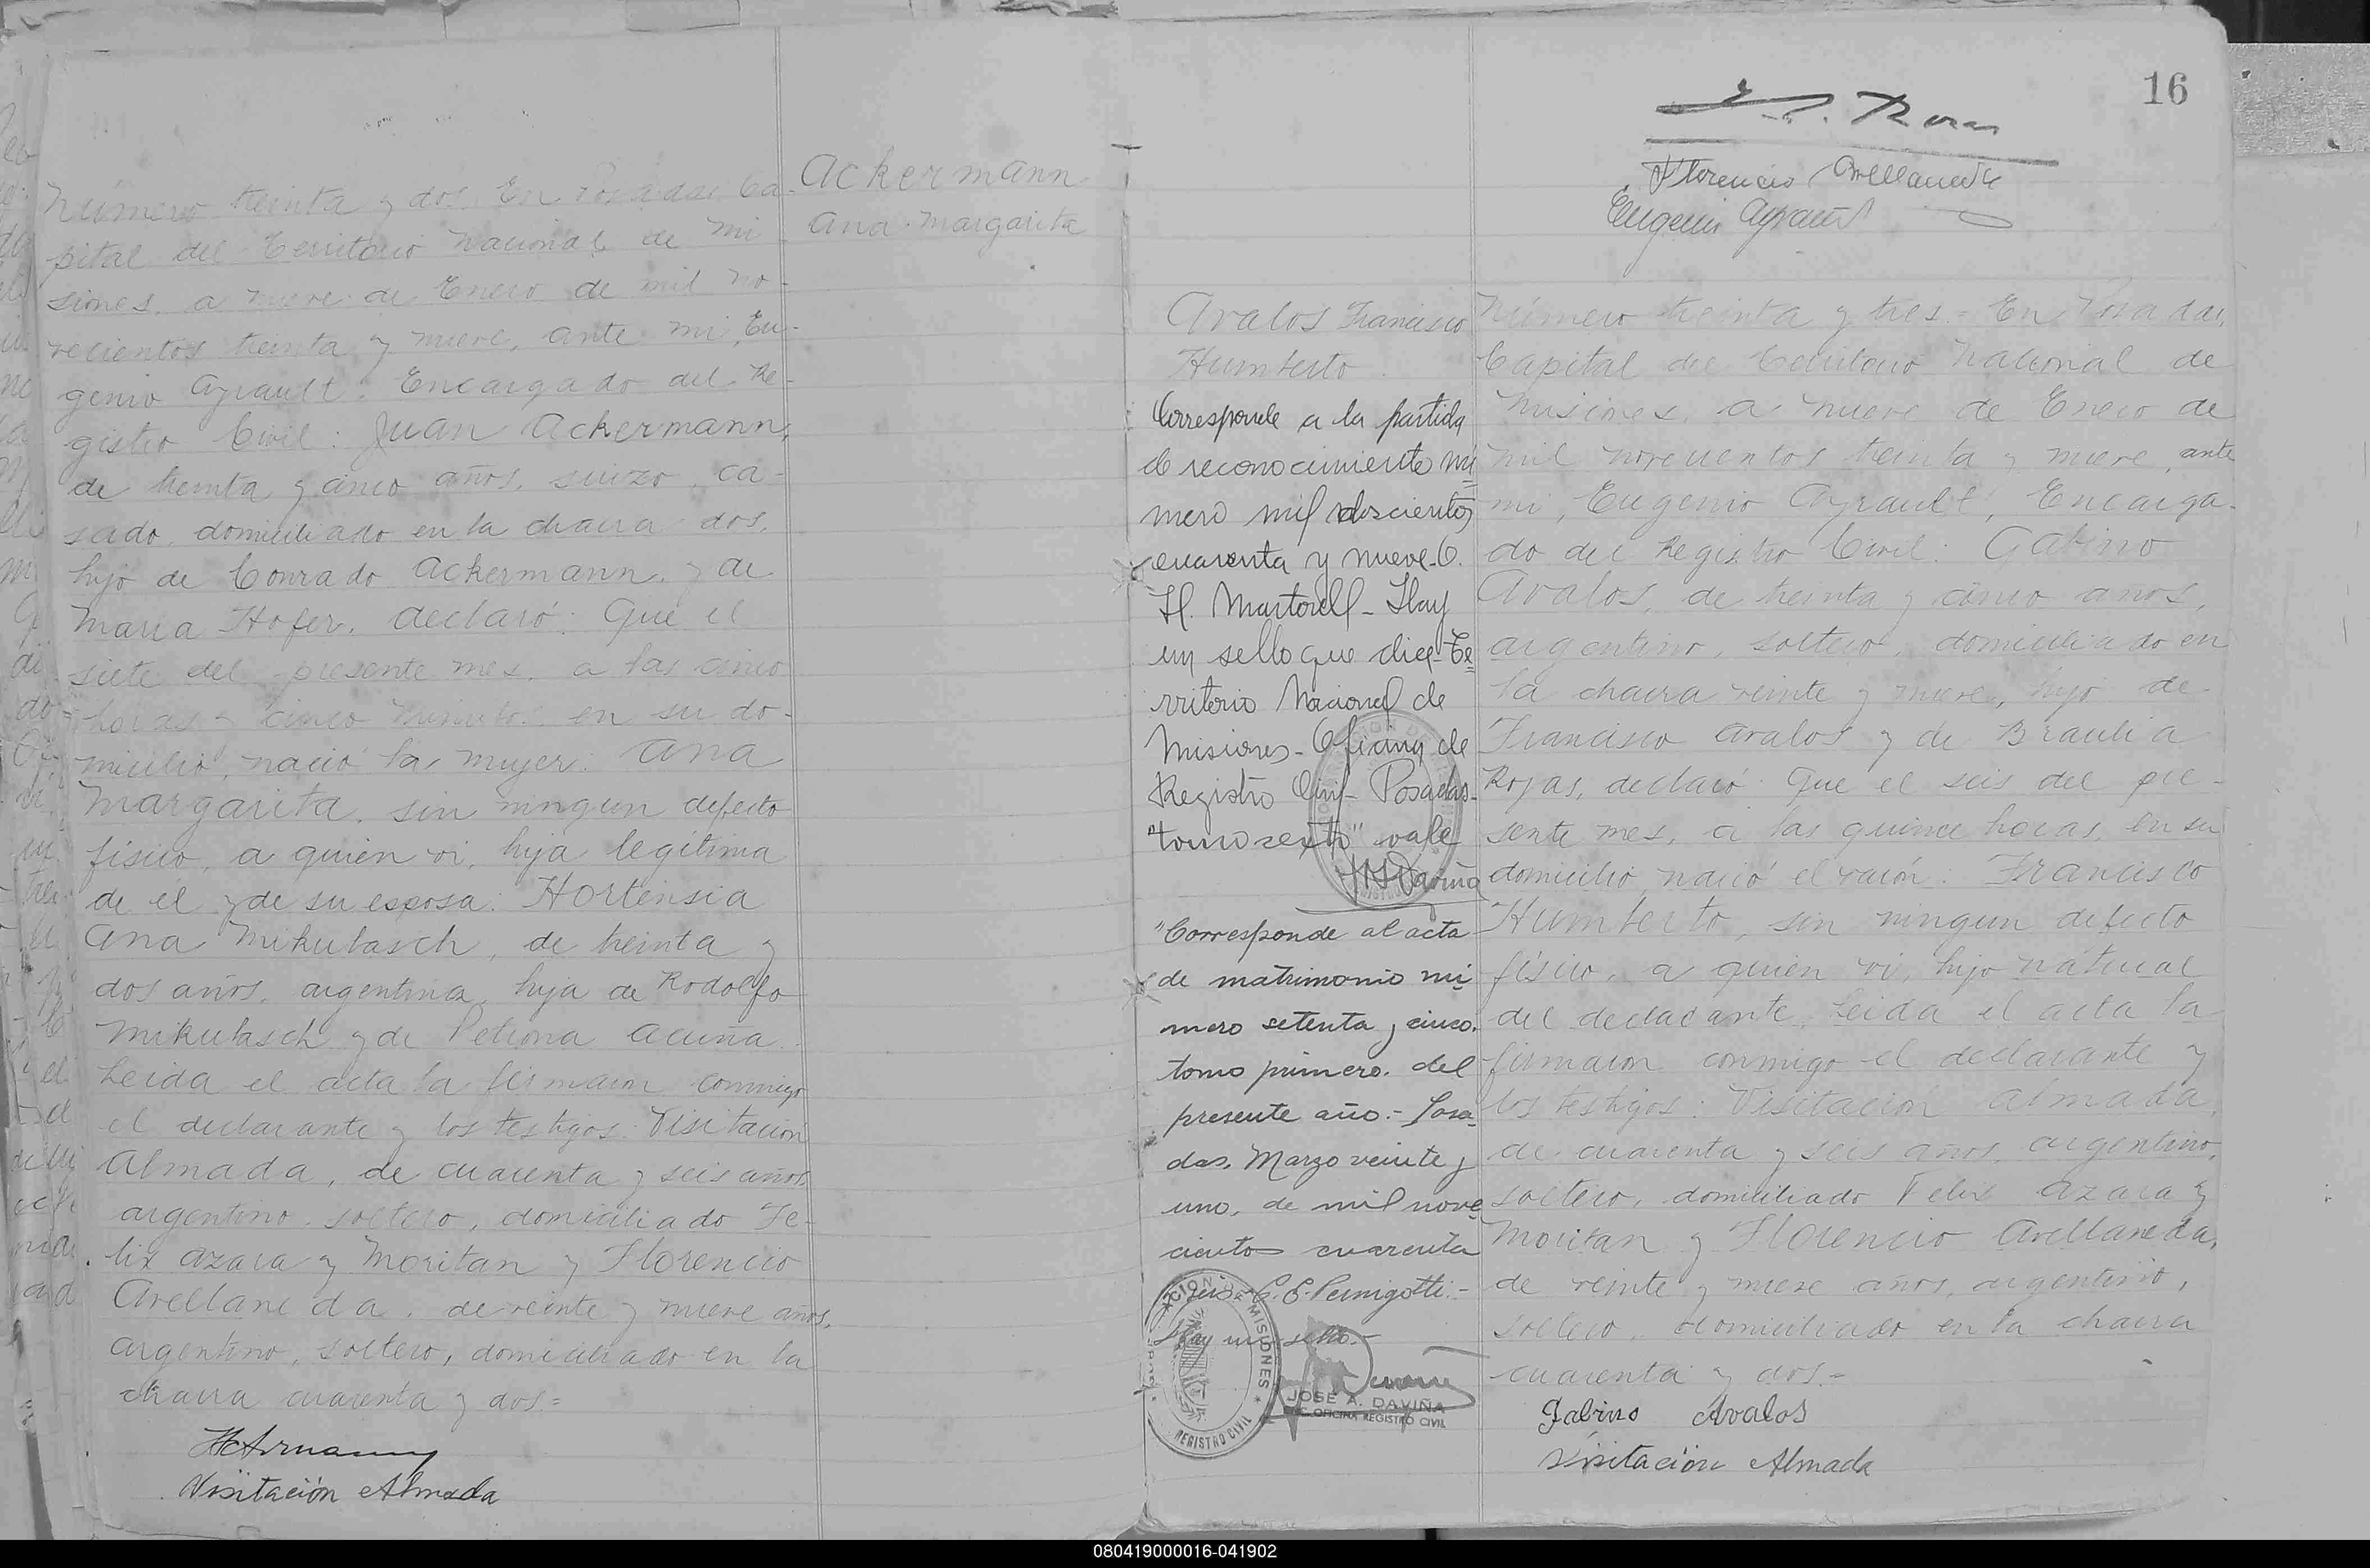 Número treinta y dos. En Posadas Ca-
pital del Territorio Nacional de Mi
siones, a nueve de Enero de mil no-
vecientos treinta y nueve, ante mi, Eu-
genio Ayrault, Encargado del Re-
gistro Civil: Juan Ackermann,
de treinta y cinco años, suizo, ca-
sado, domiciliado en la chacra dos,
hijo de Conrado Ackermann, y de
Maria Hofer, declaró: Que el
siete del presente mes, a las cinco
horas y cinco minutos en su do-
micilio, nació la mujer: Ana
Margarita, sin ningun defecto
físico, a quien vi, hija legítima
de el y de su esposa: Hortensia
Ana Mikulasch, de treinta y
dos años, argentina, hija de Rodolfo
Mikulasch y de Petrona Acuña.
Leida el acta la firmaron conmigo
el declarante y los testigos: Visitación
Almada, de cuarenta y seis años,
argentino, soltero, domiciliado Fe-
lix Azara y Moritan y Florencio
Avellaneda, de veinte y nueve años,
argentino, soltero, domiciliado en la
chacra cuarenta y dos.=
Visitación Almada
Ackermann
Ana Margarita
16
Florencio Avellaneda
Eugenio Ayrault
Avalos Francisco
Humberto.
Corresponde a la partida
de reconocimiento nú
mero mil doscientos
cuarenta y nueve-C.
H. Martorell- Hay
un sello que dice-Te
rritorio Nacional de
Misiones- Oficina de
Registro Civil- Posadas-
"tomo sexto" vale
"Corresponde al acta
de matrimonio nú
mero setenta y cinco.
tomo primero. del
presente año.- Posa
das. Marzo veinte y
uno, de mil nove
cientos cuarenta
y seis- C. E. Pernigotti.-
Hay un sello.-
MISIONES
REGISTRO CIVIL
JOSE A. DAVIÑA
ENC. OFICINA REGISTRO CIVIL
Número treinta y tres.= En Posadas,
Capital del Territorio Nacional de
Misiones, a nueve de Enero de
mil novecientos treinta y nueve, ante
mi, Eugenio Ayrault, Encarga-
do del Registro Civil: Gabino
Avalos, de treinta y cinco años,
argentino, soltero, domiciliado en
la chacra veinte y nueve, hijo de
Francisco Avalos y de Braulia
Rojas, declaró: Que el seis del pre-
sente mes, a las quince horas, en su
domicilio, nació el varón: Francisco
Humberto, sin ningun defecto
físico, a quien vi, hijo natural
del declarante. Leida el acta la
firmaron conmigo el declarante y
los testigos: Visitación Almada,
de cuarenta y seis años, argentino,
soltero, domiciliado Felix Azara y
Moritan y Florencio Avellaneda,
de veinte y nueve años, argentino,
soltero, domiciliado en la chacra
cuarenta y dos.-
Gabino Avalos
Visitación Almada
080419000016-041902